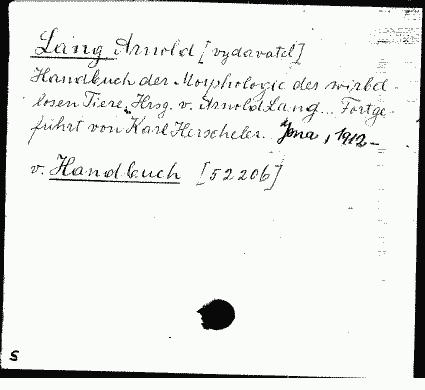 Lang Arnold [vydavatel]
Handbuch der Morphologie der wirbel-
losen Tiere, Hrsg. v. Arnold Lang... Fortge-
führt von Karl Herscheler. Jena, 1912-
v. Handbuch [52206]
s